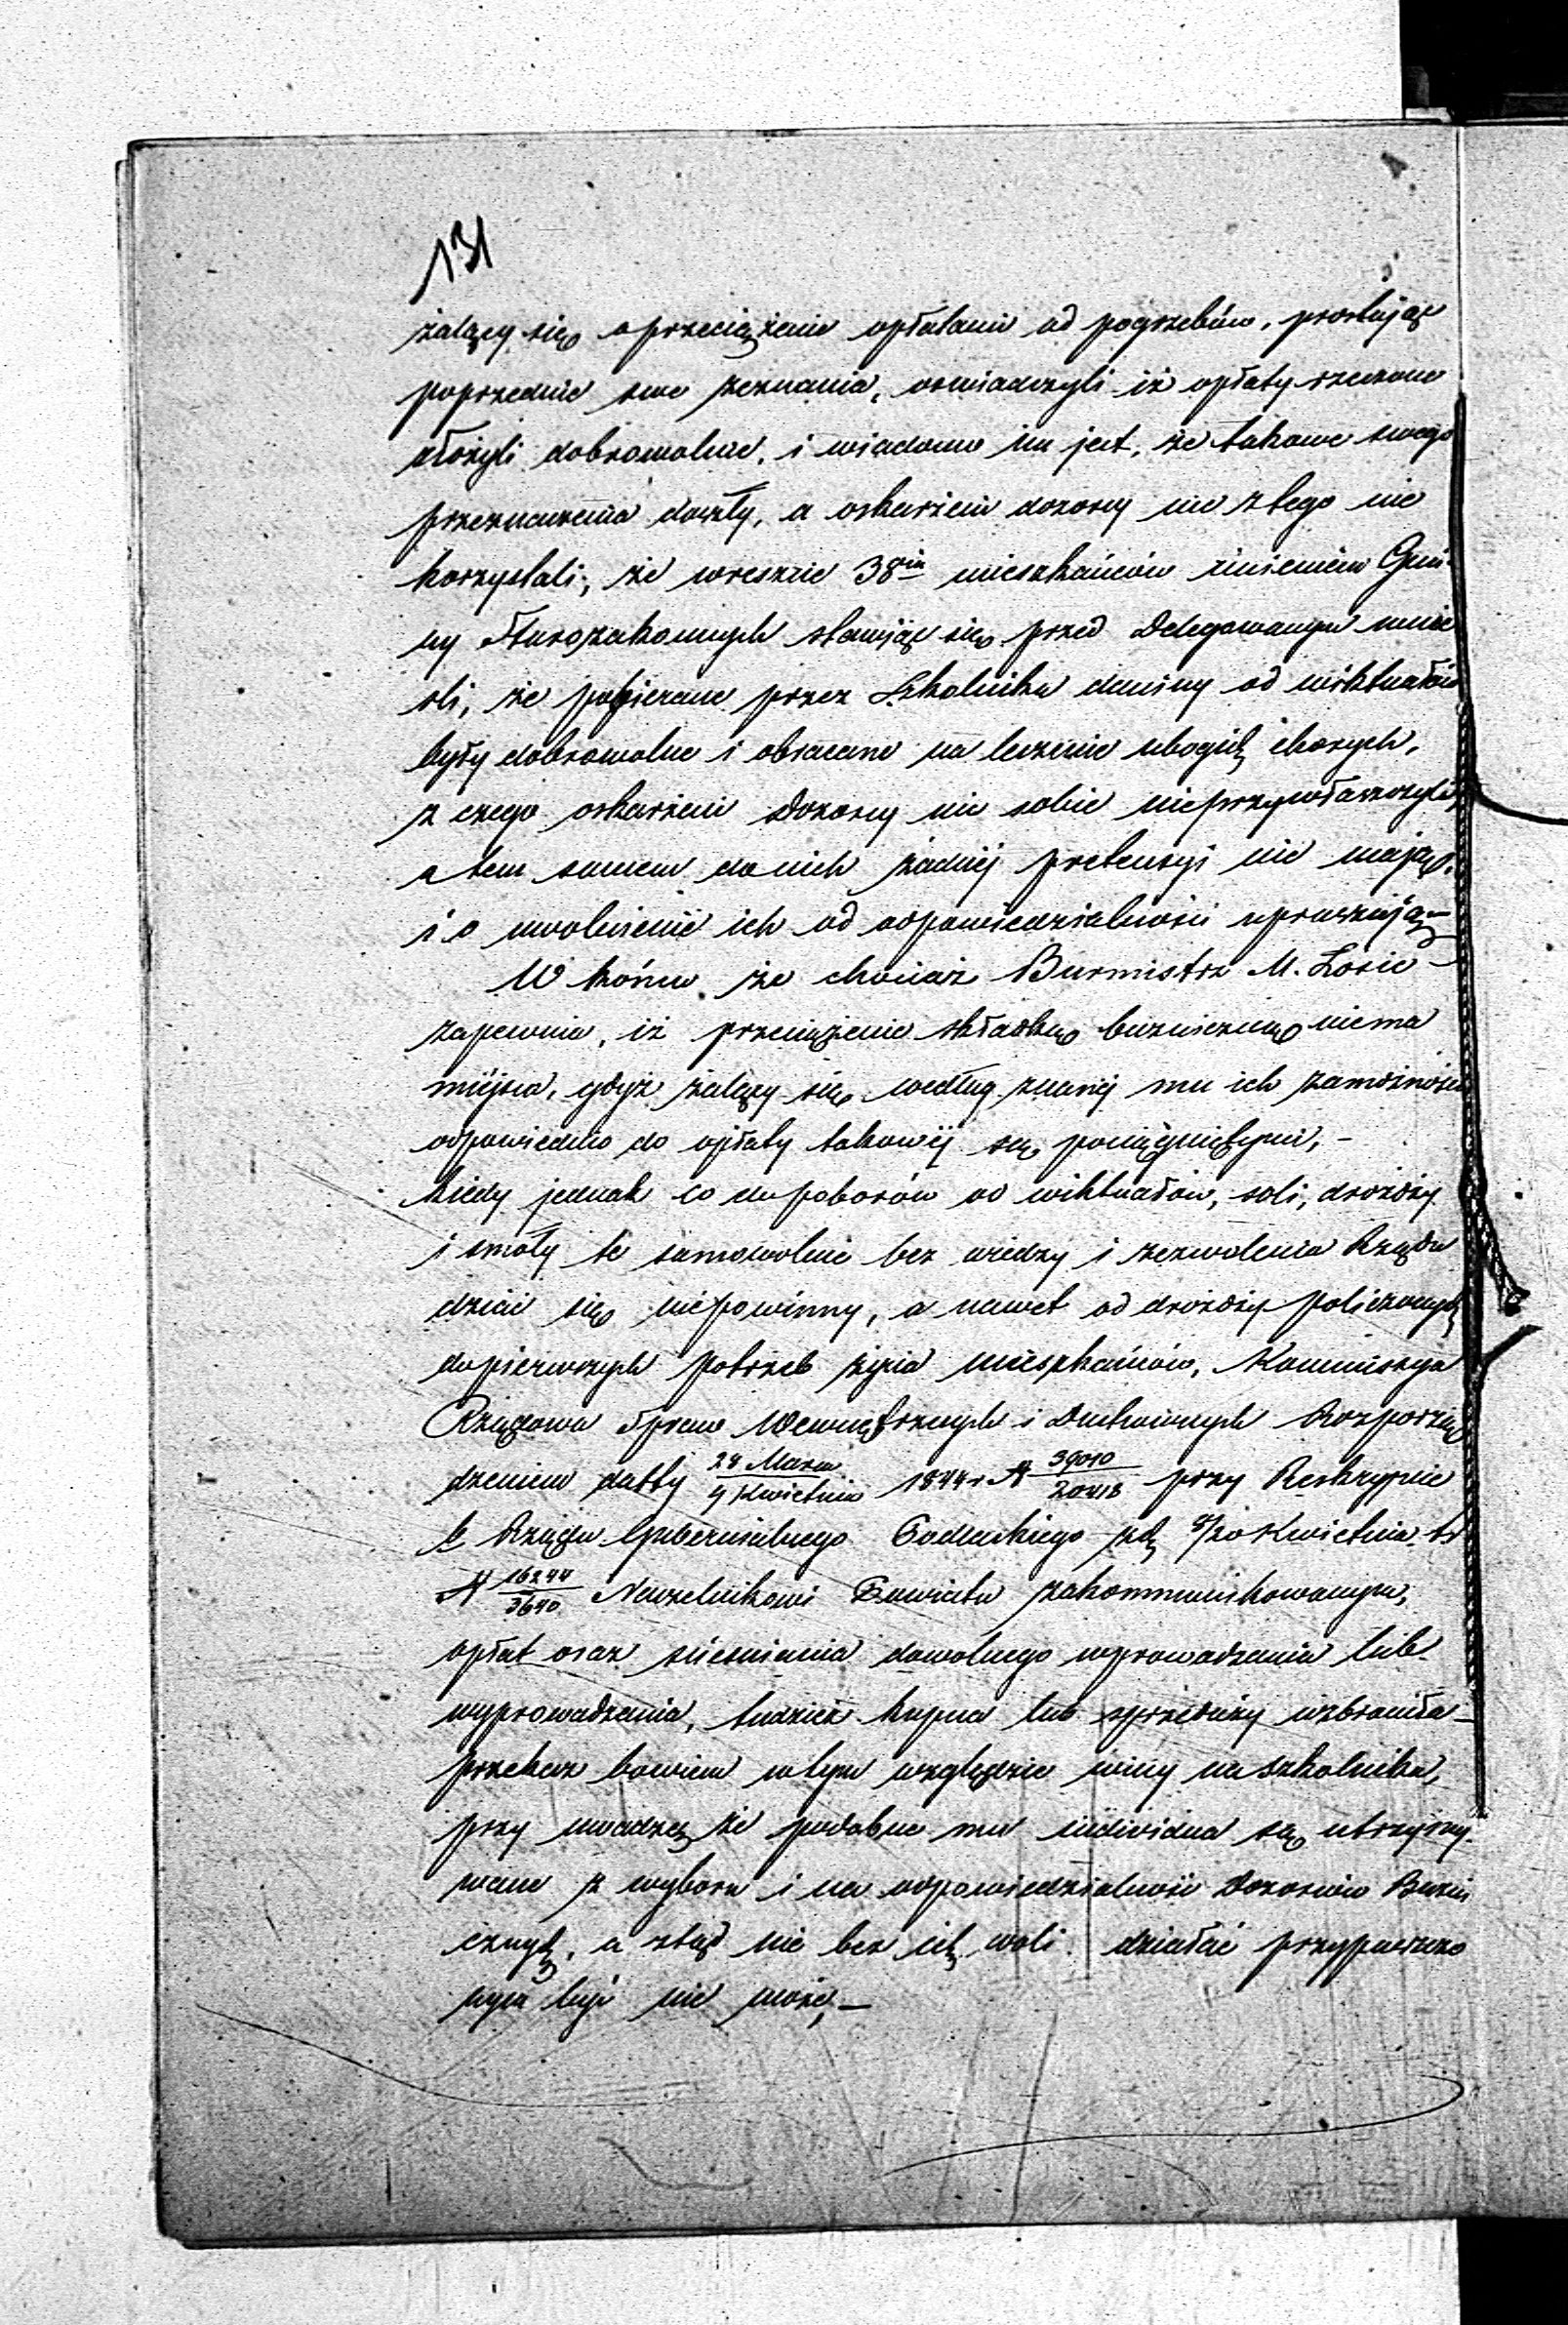 131
żalący się o przeciążenie opłatami od pogrzebów, prostując
poprzednie swe zeznania, oswiadczyli iż opłaty rzeczone
złożyli dobrowolnie, i wiadomo im jest, że takowe swego
przeznaczenia doszły, a oskarżeni dozorcy nic z tego nie
korzystali; że wreszcie 38iu mieszkańców imieniem Gmi-
ny Starozakonnych stawiąc się przed Delegowanym wnie
śli, że pobierane przez Szkolnika daniny od wiktuałów
były dobrowolne i obracane na leczenie ubogich chorych,
z czego oskarżeni Dozorcy nic sobie nieprzywłaszczyli
a tem samem do nich żadnej pretensyi nie mają,
i o uwolnienie ich od odpowiedzialności upraszają—
W końcu że chociaż Burmistrz M. Łosic
zapewnia, iż przeciążenie składką bużniczną niema
miejsca, gdyż żalący się według znanej mu ich zamożności
odpowiednio do opłaty takowej są pociągniętymi, –
kiedy jednak co do poborów od wiktuałów, soli, drożdży
i smoły te samowolnie bez wiedzy i zezwolenia Rządu
dziać się niepowinny, a nawet od drożdży policzonych
do pierwszych potrzeb życia mieszkańców, Kommissya
Rządowa Spraw Wewnętrznych i Duchownych Rozporzą
dzeniem datty 24 Marca / 4 Kwietnia 1844 r. N 39010 / 20418 przy Reskrypcie
b. Rządu Gubernialnego Podlaskiego z d. 8/20 Kwietnia t.r
N 16244 / 3640 Naczelnikowi Powiatu zakommunikowanym,
opłat oraz ścieśniania dowolnego wprowadzania lub
wyprowadzania, tudzież kupna lub sprzedaży wzbroniła—
przekaz bowiem w tym względzie winy na szkolnika,
przy uwadze że podobne mu individua są utrzymy
wane z wyboru i na odpowiedzialność Dozorców Bużni
cznych, a ztąd nie bez ich woli działać przypuszczo
nym być nie może, —